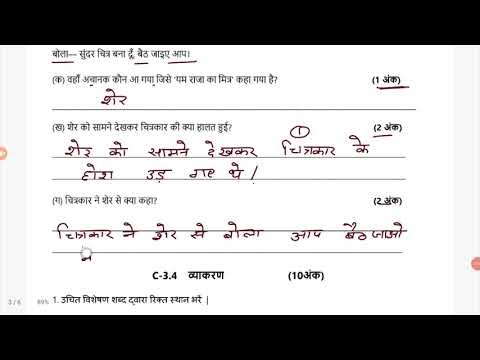 बोला— सुंदर चित्र बना दूँ, बैठ जाइए आप।
(क) वहाँ अचानक कौन आ गया जिसे 'यम राजा का मित्र' कहा गया है? (1 अंक)
शेर
(ख) शेर को सामने देखकर चित्रकार की क्या हालत हुई? (2 अंक)
1
शेर को सामने देखकर चित्रकार के
होश उड़ गए थे।
(ग) चित्रकार ने शेर से क्या कहा? (2 अंक)
चित्रकार ने शेर से बोला आप बैठ जाओ
C-3.4 व्याकरण (10अंक)
3 / 6 89% 1. उचित विशेषण शब्द द्वारा रिक्त स्थान भरें |